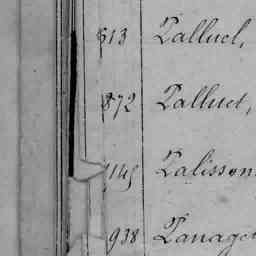 613 Lalluel,
872 Lalluet,
1145 Lalisson
938 Lanage